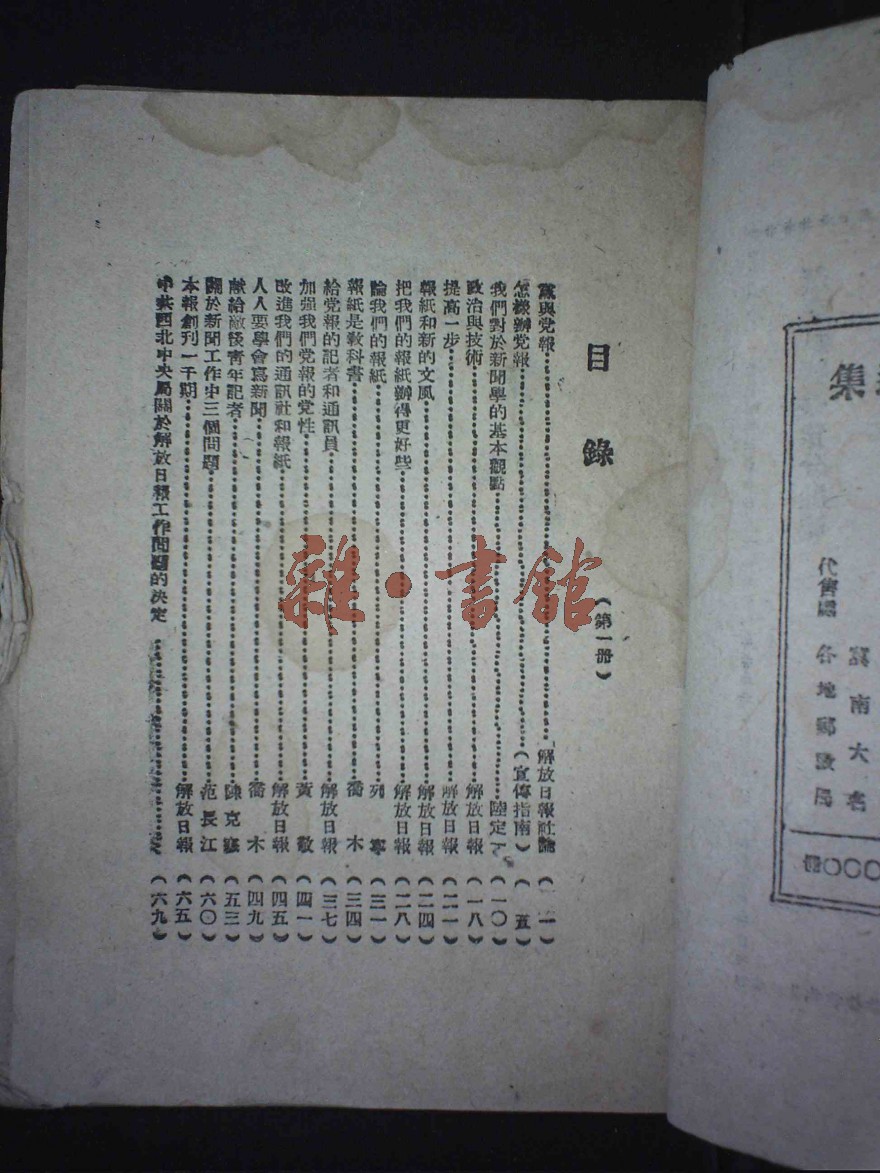 集
冀南大名
代售處 各地郵政局
目錄
(第一册)
黨與党報 解放日報社論 (一)
怎樣辦党報 (宣傳指南) (五)
我們對於新聞學的基本觀點 陸定一 (一〇)
政治與技術 解放日報 (一八)
提高一步 解放日報 (二一)
報紙和新的文風 解放日報 (二四)
把我們的報紙辦得更好些 解放日報 (二八)
論我們的報紙 列寧 (三一)
報紙是教科書 喬木 (三四)
給党報的記者和通訊員 解放日報 (三七)
加强我們党報的党性 黃敬 (四一)
改進我們的通訊社和報紙 解放日報 (四五)
人人要學會寫新聞 喬木 (四九)
献給敵後青年記者 陳克寒 (五三)
關於新聞工作中三個問題 范長江 (六〇)
本報創刊一千期 解放日報 (六五)
中共西北中央局關於解放日報工作問題的决定 (六九)
雜·書館